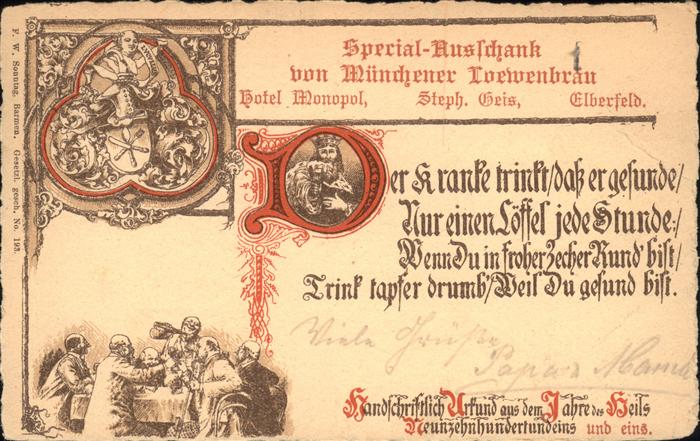 Special-Ausschank
von Münchener Loewenbräu
Hotel Monopol, Steph. Geis, Elberfeld.
Der Kranke trinkt/daß er gesunde/
Nur einen Löffel jede Stunde:/
Wenn Du in froher Zecher Rund' bist/
Trink tapfer drumb/Weil Du gesund bist.
Viele Grüße
Papa u Mama
Handschriftlich Urkund aus dem Jahre des Heils
Neunzehnhundertundeins und eins.
F. W. Sonntag, Barmen. Gesetzl. gesch. No. 193.